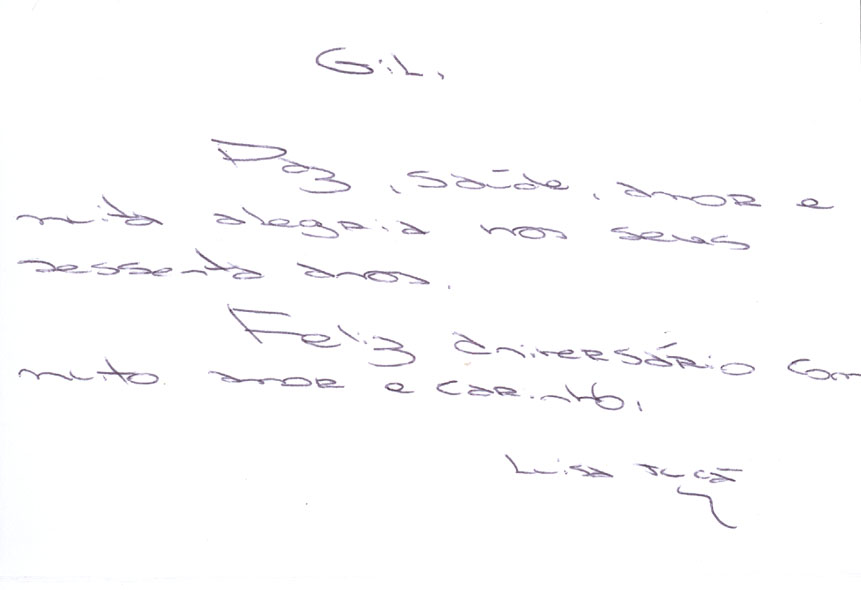 Gil,
Paz, saúde, amor e
muita alegria nos seus
sessenta anos.
Feliz aniversário com
muito amor e carinho,
Luisa Jucá